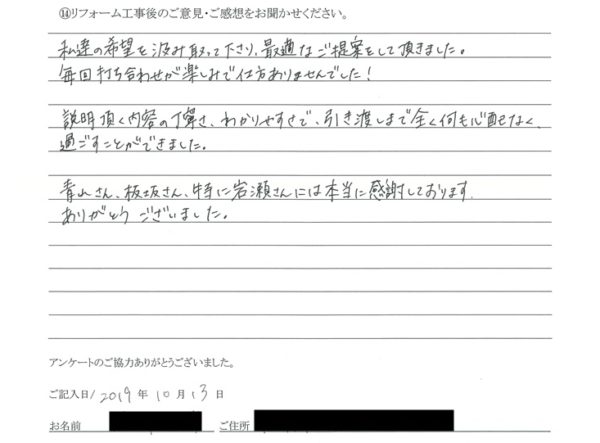 ⑭リフォーム工事後のご意見・ご感想をお聞かせください。
私達の希望を汲み取って下さり、最適なご提案をして頂きました。
毎回打ち合わせが楽しみで仕方ありませんでした!
説明頂く内容の丁寧さ、わかりやすさで、引き渡しまで全く何も心配なく、
過ごすことができました。
青山さん、板坂さん、特に岩瀬さんには本当に感謝しております。
ありがとうございました。
アンケートのご協力ありがとうございました。
ご記入日/2019年10月13日
お名前 ご住所